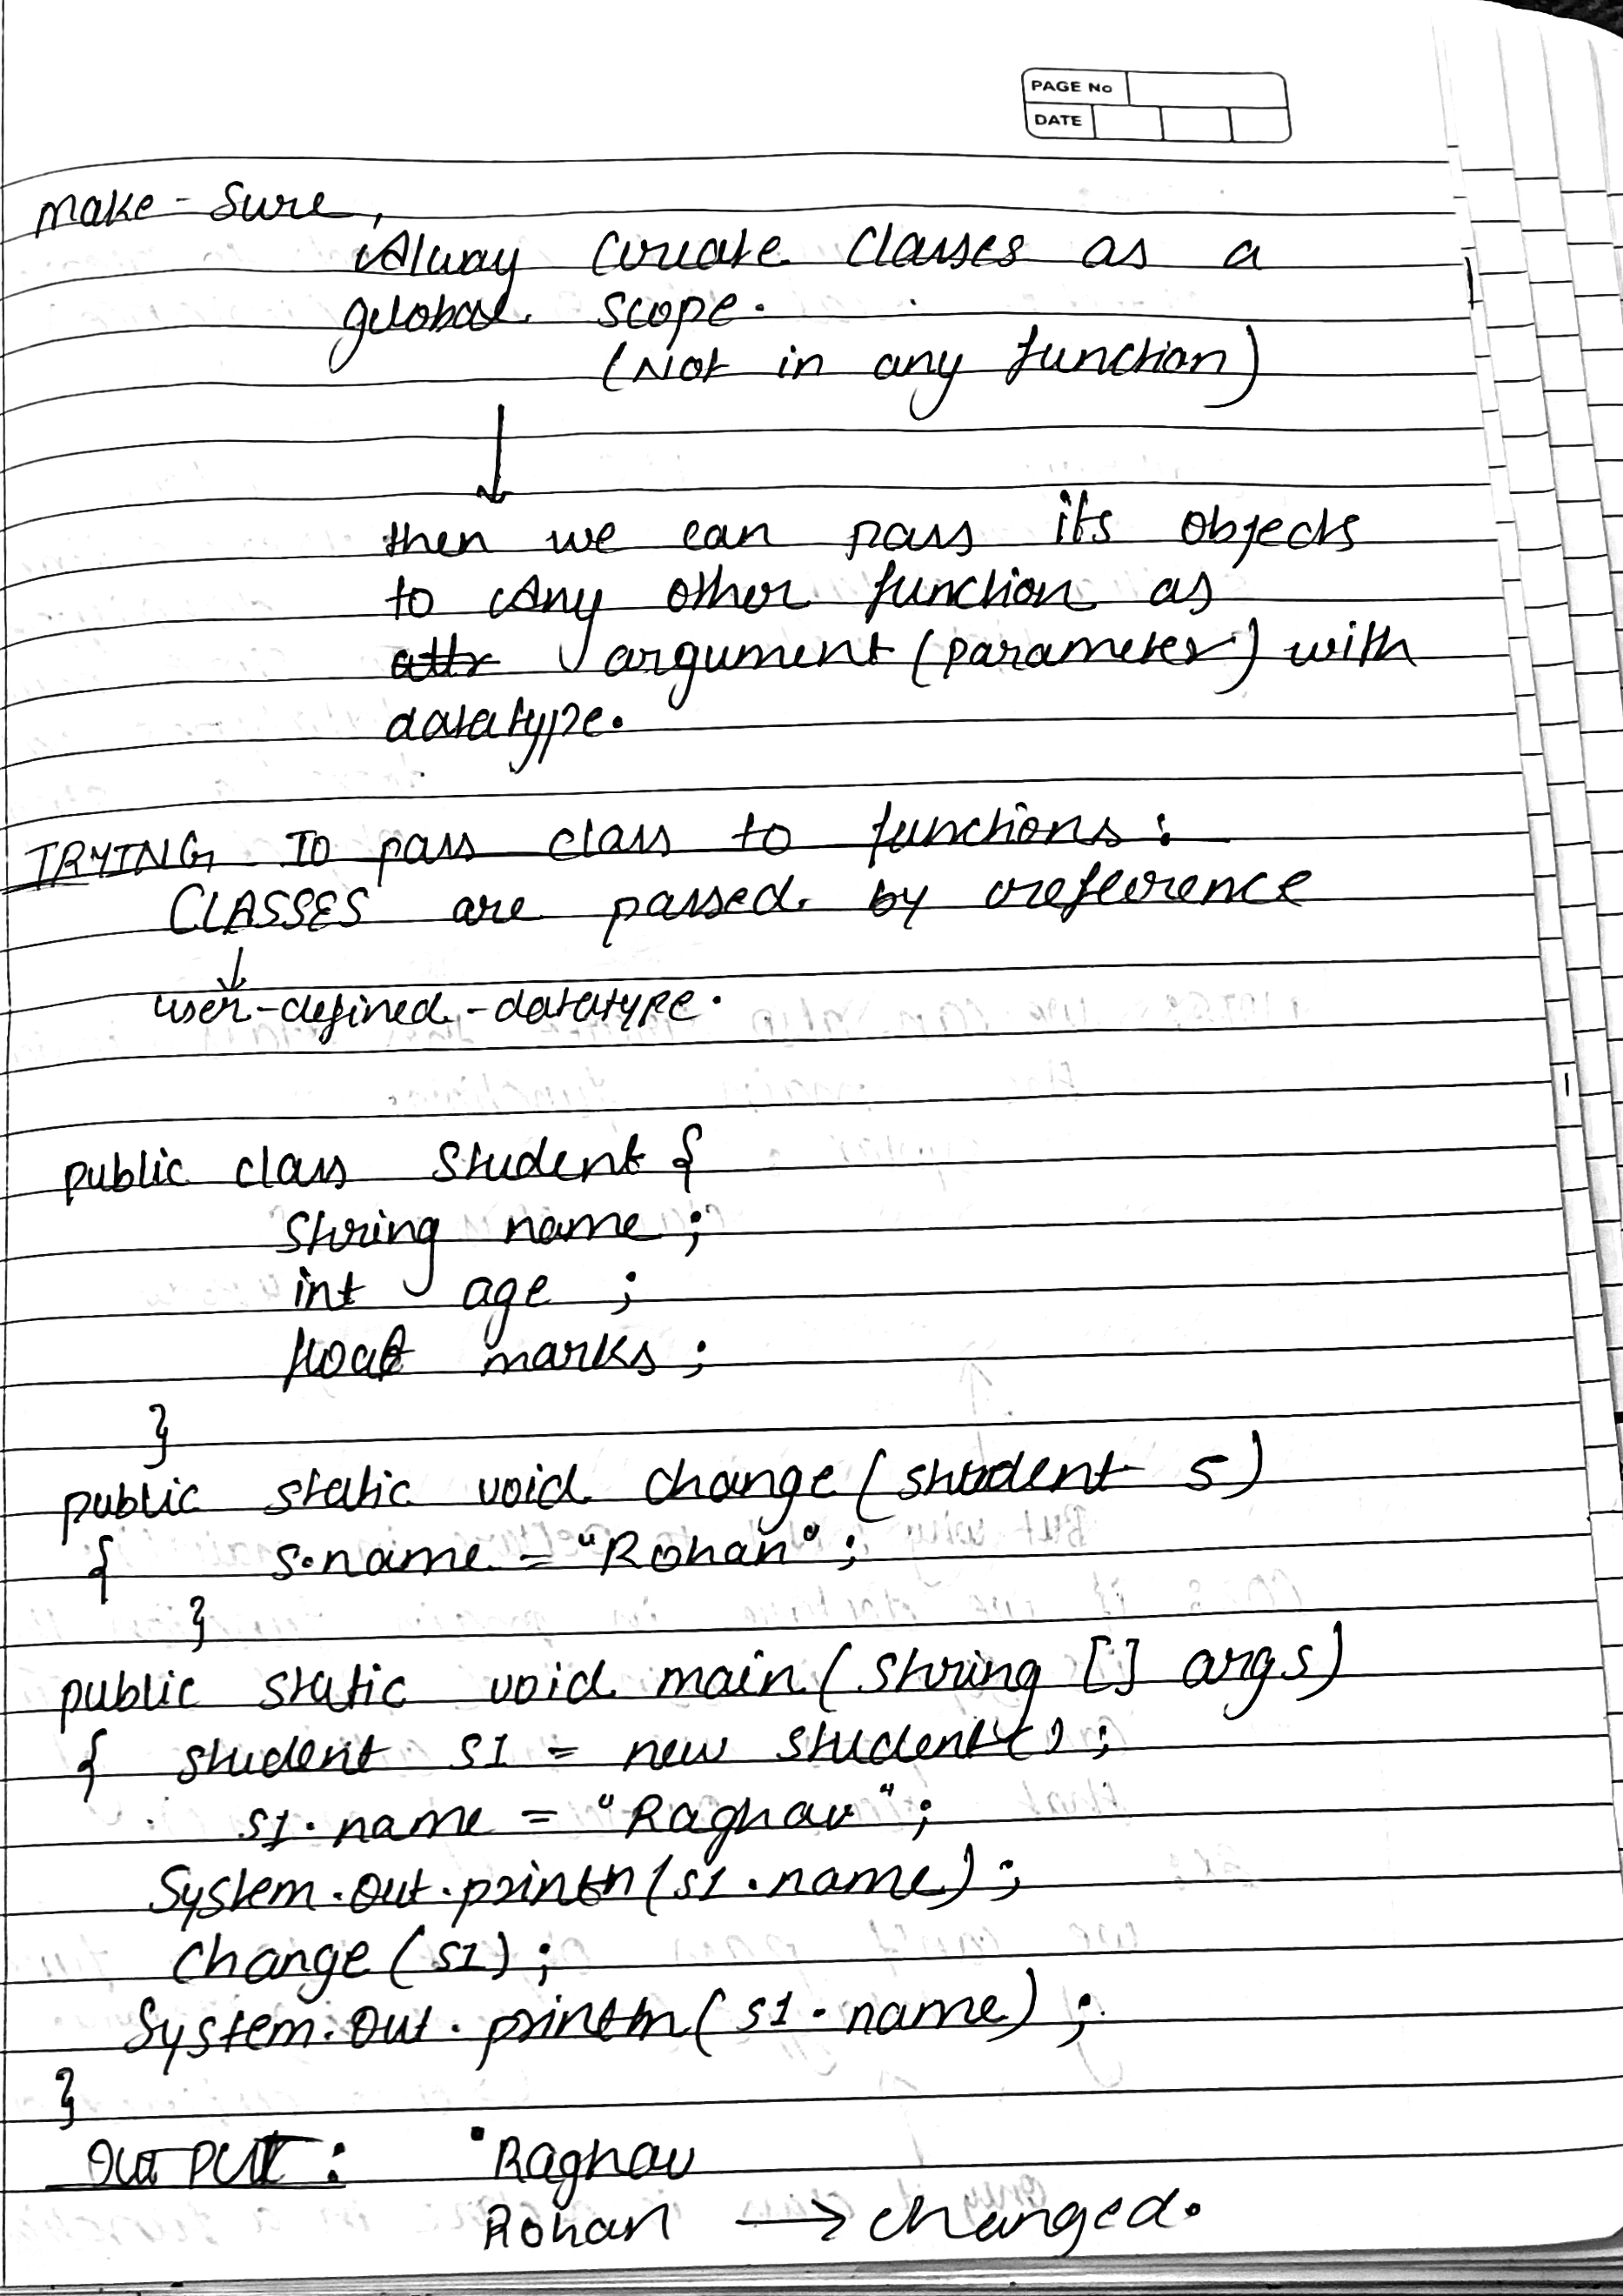 PAGE No
DATE
make-sure,
Alway create classes as a
global scope.
(Not in any function)
then we can pass its objects
to any other function as
attr argument (parameter) with
datatype.
TRYING TO pass class to functions :
CLASSES are passed by reference
user-defined-datatype.
public class Student {
String name ;
int age ;
float marks ;
}
public static void change (student s)
{ s.name = "Rohan" ;
}
public static void main (string [] args)
{ student s1 = new student() ;
s1.name = "Raghav" ;
System.out.println (s1.name) ;
change (s1) ;
System.out.println (s1.name) ;
}
OUTPUT : Raghav
Rohan → changed.